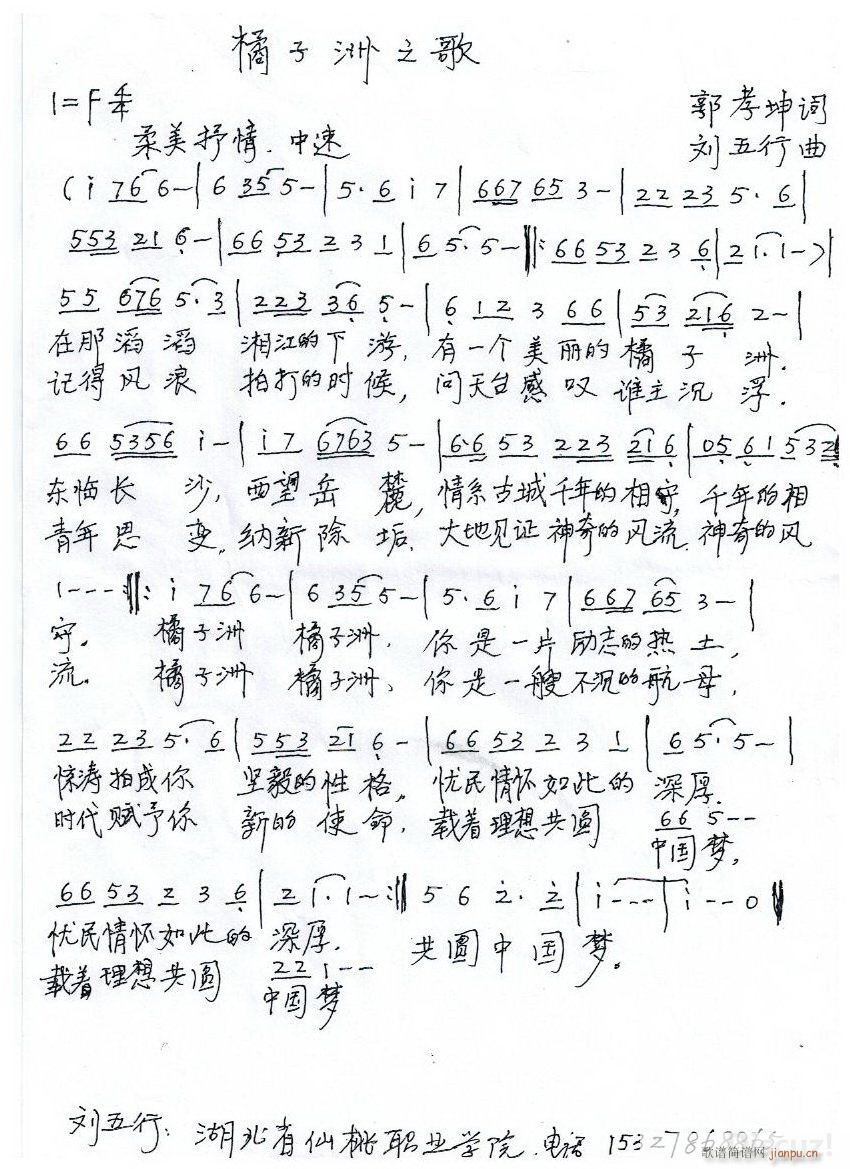 橘子洲之歌
1=F 4/4
郭孝坤词
柔美抒情.中速
刘五行曲
(i 7 6 6 - | 6 3 5 5 - | 5. 6 i 7 | 6 6 7 6 5 3 - | 2 2 2 3 5. 6 |
5 5 3 2 1 6 - | 6 6 5 3 2 3 1 | 6 5. 5 - ‖: 6 6 5 3 2 3 6 | 2 1. 1 - ) |
5 5 6 7 6 5. 3 | 2 2 3 3 6 5 - | 6 1 2 3 6 6 | 5 3 2 1 6 2 - |
在那滔滔 湘江的下游, 有一个美丽的橘子洲.
记得风浪 拍打的时候, 问天台感叹 谁主沉浮.
6 6 5 3 5 6 i - | i 7 6 7 6 3 5 - | 6. 6 5 3 2 2 3 2 1 6 | 0 5 6 1 5 3 2 |
东临长沙, 西望岳麓, 情系古城千年的相守, 千年的相
青年思变, 纳新除垢. 大地见证神奇的风流. 神奇的风
1 - - - :‖: i 7 6 6 - | 6 3 5 5 - | 5. 6 i 7 | 6 6 7 6 5 3 - |
守. 橘子洲 橘子洲. 你是一片励志的热土,
流. 橘子洲 橘子洲、你是一艘不沉的航母,
2 2 2 3 5. 6 | 5 5 3 2 1 6 - | 6 6 5 3 2 3 1 | 6 5. 5 - |
惊涛拍成你 坚毅的性格, 忧民情怀如此的 深厚.
时代赋予你 新的使命. 载着理想共圆 6 6 5 - -
中国梦,
6 6 5 3 2 3 6 | 2 1. 1 - :‖ 5 6 2. 2 | i - - - | i - - 0 ‖
忧民情怀如此的 深厚. 共圆中国梦。
载着理想共圆 2 2 1 - -
中国梦
刘五行: 湖北省仙桃职业学院. 电话
歌谱简谱网 jianpu.cn